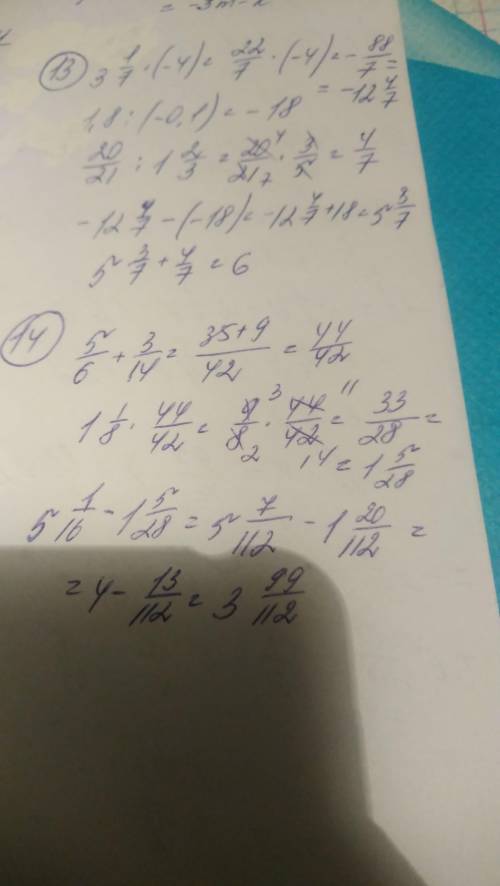 = -3m-2
13) 3 1/7 · (-4) = 22/7 · (-4) = - 88/7 =
= -12 4/7
1,8 : (-0,1) = -18
20/21 : 1 2/3 = 20/21 · 3/5 = 4/7
-12 4/7 - (-18) = -12 4/7 + 18 = 5 3/7
5 3/7 + 4/7 = 6
14) 5/6 + 3/14 = 35+9/42 = 44/42
1 1/8 · 44/42 = 9/8 · 44/42 = 33/28 =
= 1 5/28
5 1/16 - 1 5/28 = 5 7/112 - 1 20/112 =
= 4 - 13/112 = 3 99/112